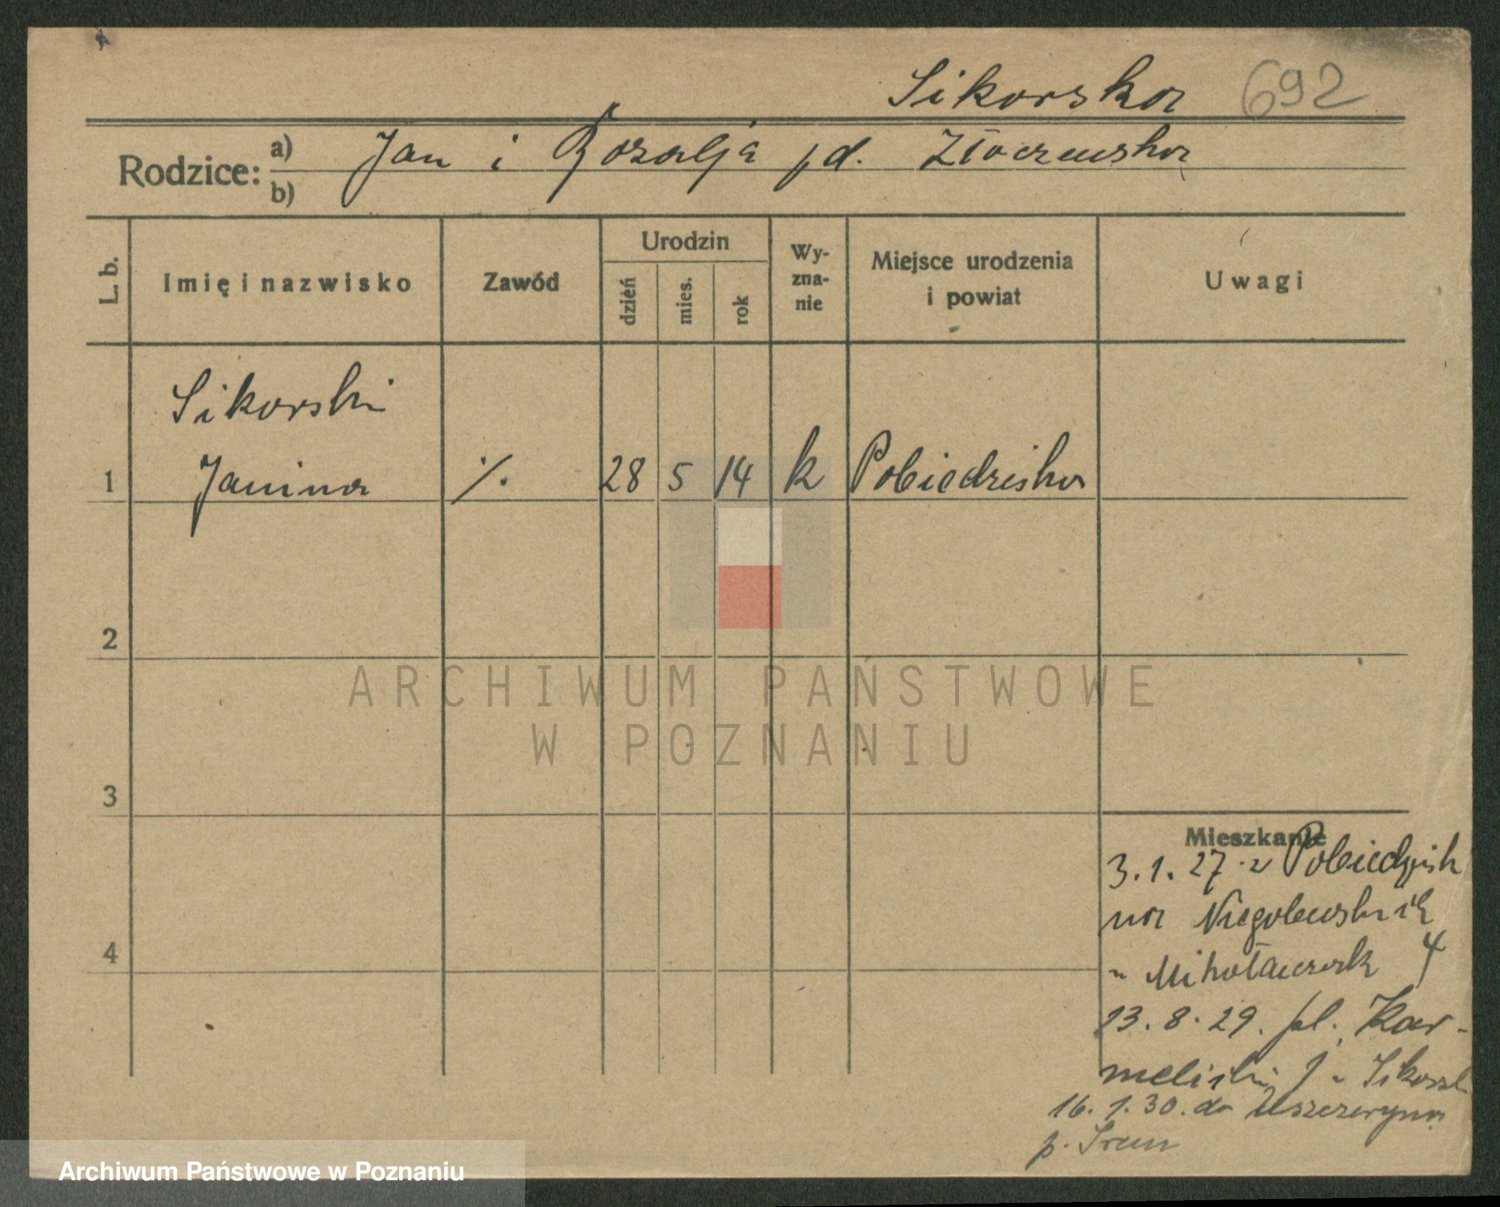 Sikorska 692
Rodzice: a) Jan i Rozalja pd.
b)
L. b. Imię i nazwisko Zawód Urodzin dzień mies. rok Wyznanie Miejsce urodzenia i powiat Uwagi
Sikorski
1 Janina ·/. 28 5 14 k Pobiedziska
2
ARCHIWUM PAŃSTWOWE
W POZNANIU
3
Mieszkanie
3.1.27 z Pobiedzisk
na Niegolewskich
4
4
13.8.29. pl. Kar-
melicki
16.1.30. do
p. Śrem
Archiwum Państwowe w Poznaniu